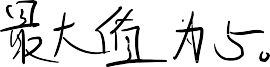 最大值为5。